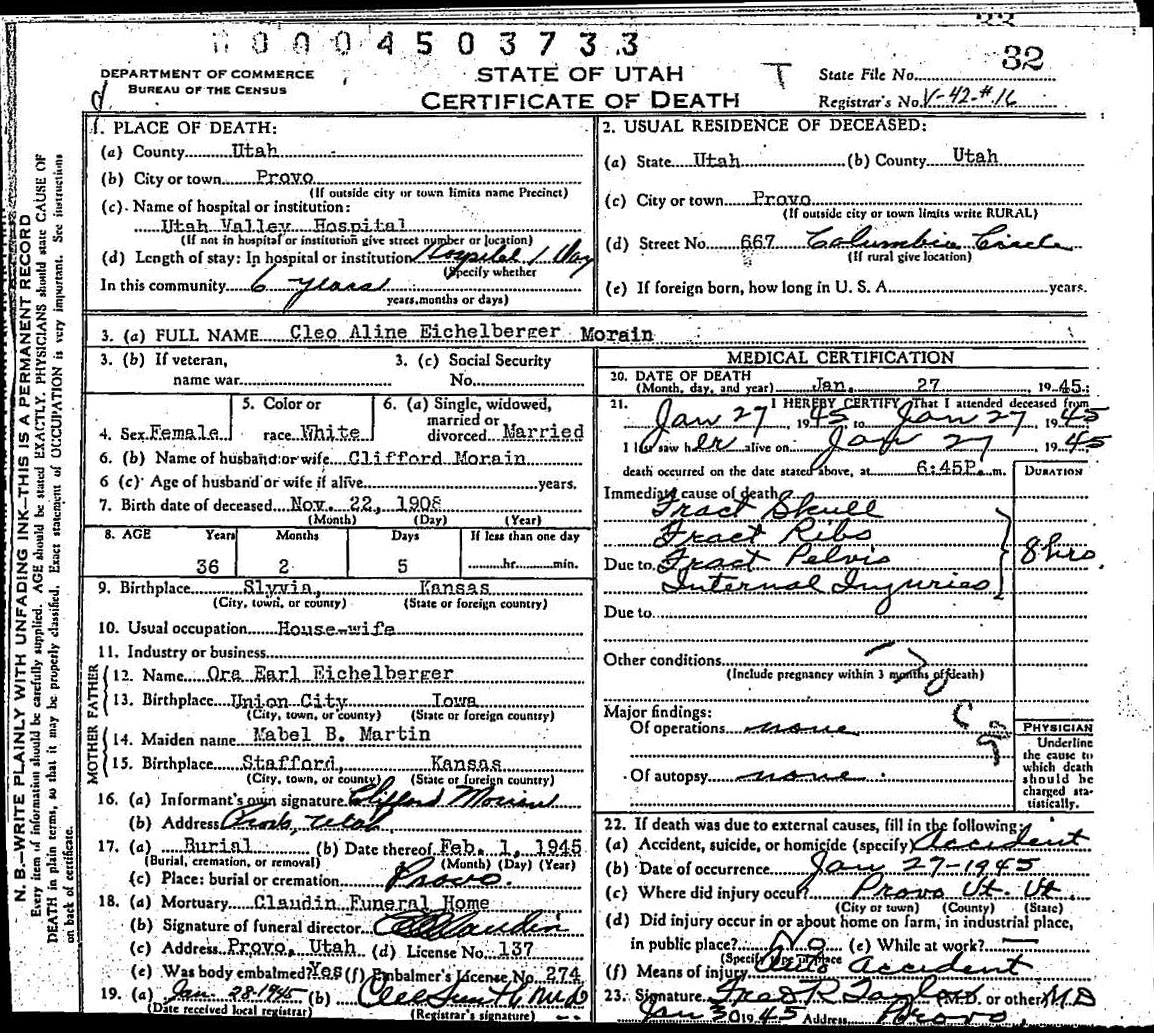 0 0 0 4 5 0 3 7 3 3
32
DEPARTMENT OF COMMERCE
BUREAU OF THE CENSUS
STATE OF UTAH
CERTIFICATE OF DEATH
T
State File No.
Registrar's No. V-42-#16
d
N. B.—WRITE PLAINLY WITH UNFADING INK—THIS IS A PERMANENT RECORD
Every item of information should be carefully supplied. AGE should be stated EXACTLY. PHYSICIANS should state CAUSE OF
DEATH in plain terms, so that it may be properly classified. Exact statement of OCCUPATION is very important. See instructions
on back of certificate.
1. PLACE OF DEATH:
(a) County Utah
(b) City or town Provo
(If outside city or town limits name Precinct)
(c) Name of hospital or institution:
Utah Valley Hospital
(If not in hospital or institution give street number or location)
(d) Length of stay: In hospital or institution Hospital 1 Day
(Specify whether
In this community 6 years
years, months or days)
2. USUAL RESIDENCE OF DECEASED:
(a) State Utah (b) County Utah
(c) City or town Provo
(If outside city or town limits write RURAL)
(d) Street No. 667 Columbia Circle
(If rural give location)
(e) If foreign born, how long in U. S. A. years.
3. (a) FULL NAME Cleo Aline Eichelberger Morain
3. (b) If veteran, 3. (c) Social Security
name war No.
4. Sex Female
5. Color or
race White
6. (a) Single, widowed,
married or
divorced Married
6. (b) Name of husband or wife Clifford Morain
6 (c) Age of husband or wife if alive years.
7. Birth date of deceased Nov. 22, 1908
(Month) (Day) (Year)
8. AGE Years Months Days If less than one day
36 2 5 hr. min.
9. Birthplace Slyvia, Kansas
(City, town, or county) (State or foreign country)
10. Usual occupation House-wife
11. Industry or business
FATHER
12. Name Ora Earl Eichelberger
13. Birthplace Union City Iowa
(City, town, or county) (State or foreign country)
MOTHER
14. Maiden name Mabel B. Martin
15. Birthplace Stafford, Kansas
(City, town, or county) (State or foreign country)
16. (a) Informant's own signature Clifford Morain
(b) Address Provo, Utah
17. (a) Burial (b) Date thereof Feb. 1, 1945
(Burial, cremation, or removal) (Month) (Day) (Year)
(c) Place: burial or cremation Provo.
18. (a) Mortuary Claudin Funeral Home
(b) Signature of funeral director Claudin
(c) Address Provo, Utah (d) License No. 137
(e) Was body embalmed? Yes (f) Embalmer's License No. 274
19. (a) Jan 28-1945 (b) M.D
(Date received local registrar) (Registrar's signature)
MEDICAL CERTIFICATION
20. DATE OF DEATH
(Month, day, and year) Jan. 27, 1945
21. I HEREBY CERTIFY That I attended deceased from
Jan 27, 1945 to Jan 27, 1945
I last saw her alive on Jan 27 1945
death occurred on the date stated above, at 6:45P. m.
DURATION
Immediate cause of death
Fract Skull
Fract Ribs
Due to Fract Pelvis
Internal Injuries
8 hrs.
Due to
Other conditions
(Include pregnancy within 3 months of death)
Major findings:
Of operations none
Of autopsy none
PHYSICIAN
Underline
the cause to
which death
should be
charged sta-
tistically.
22. If death was due to external causes, fill in the following:
(a) Accident, suicide, or homicide (specify) Accident
(b) Date of occurrence Jan 27-1945
(c) Where did injury occur? Provo Ut. Ut.
(City or town) (County) (State)
(d) Did injury occur in or about home on farm, in industrial place,
in public place? No (e) While at work? —
(Specify type of place
(f) Means of injury Auto Accident
23. Signature Fred R Taylor (M.D. or other) M D
Jan 30 1945 Address Provo.